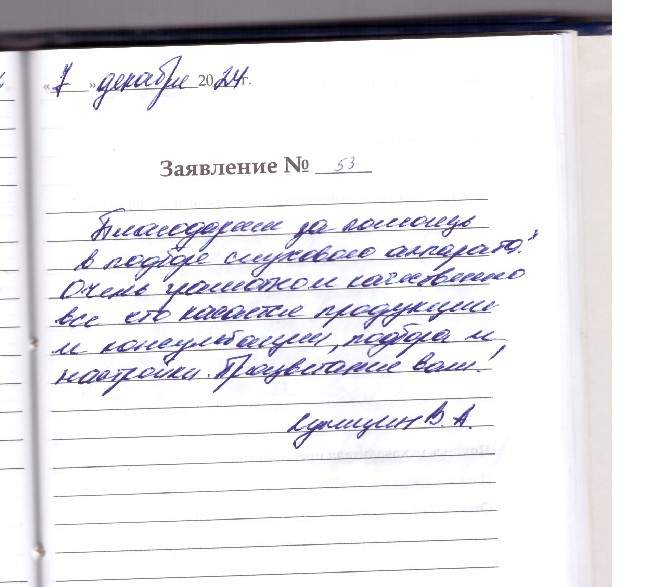 «7» декабря 2024 г.
Заявление № 53
Благодарим за помощь
в подборе слухового аппарата!
Очень грамотном качественно
все что касается продукции
и консультации, подбора и
настройки. Процветание вам!
В. А.